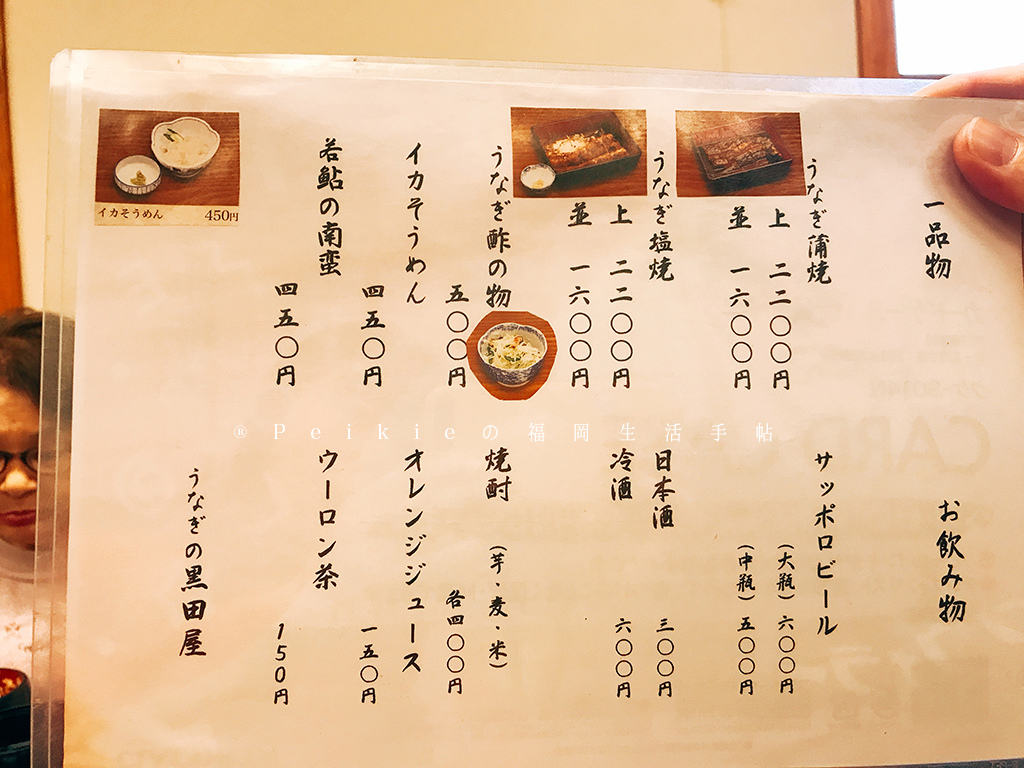 一品物
うなぎ蒲焼
上 二二〇〇円
並 一六〇〇円
うなぎ塩焼
上 二二〇〇円
並 一六〇〇円
うなぎ酢の物
五〇〇円
イカそうめん
四五〇円
若鮎の南蛮
四五〇円
イカそうめん 450円
お飲み物
サッポロビール
(大瓶) 六〇〇円
(中瓶) 五〇〇円
日本酒 三〇〇円
冷酒 六〇〇円
焼酎 (芋・麦・米)
各四〇〇円
オレンジジュース
一五〇円
ウーロン茶
150円
うなぎの黒田屋
® Peikieの福岡生活手帖